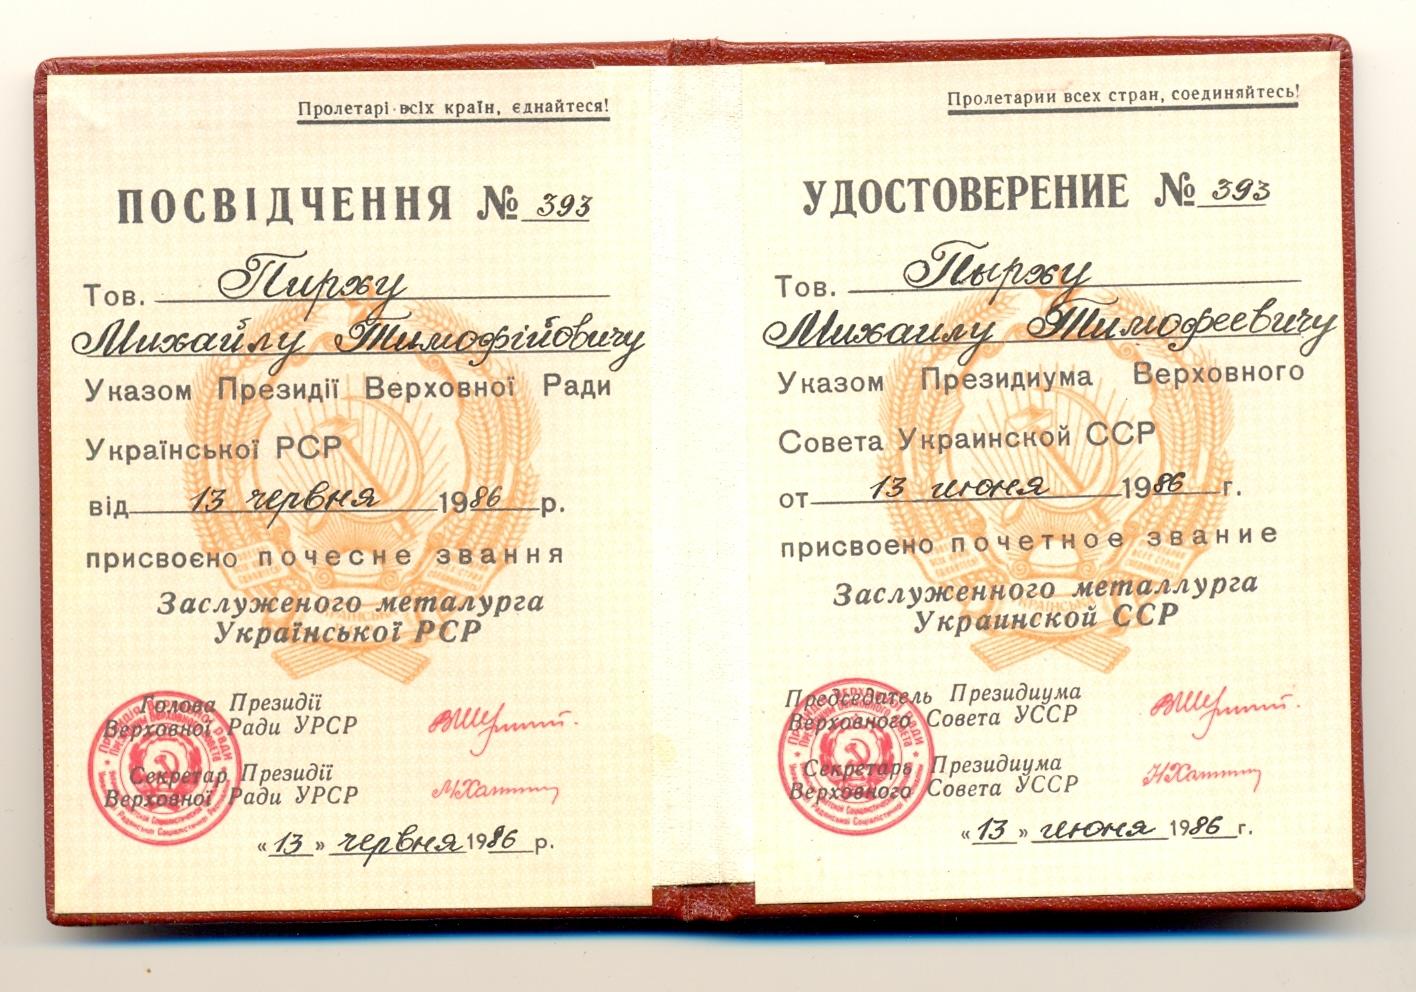 Пролетарі всіх країн, єднайтеся!
ПОСВІДЧЕННЯ № 393
Тов. Пиржу
Михайлу Тимофійовичу
Указом Президії Верховної Ради
Української РСР
від 13 червня 1986 р.
присвоєно почесне звання
Заслуженого металурга
Української РСР
Голова Президії
Верховної Ради УРСР
Секретар Президії
Верховної Ради УРСР
«13» червня 1986 р.
Пролетарии всех стран, соединяйтесь!
УДОСТОВЕРЕНИЕ № 393
Тов. Пыржу
Михаилу Тимофеевичу
Указом Президиума Верховного
Совета Украинской ССР
от 13 июня 1986 г.
присвоено почетное звание
Заслуженного металлурга
Украинской ССР
Председатель Президиума
Верховного Совета УССР
Секретарь Президиума
Верховного Совета УССР
«13» июня 1986 г.